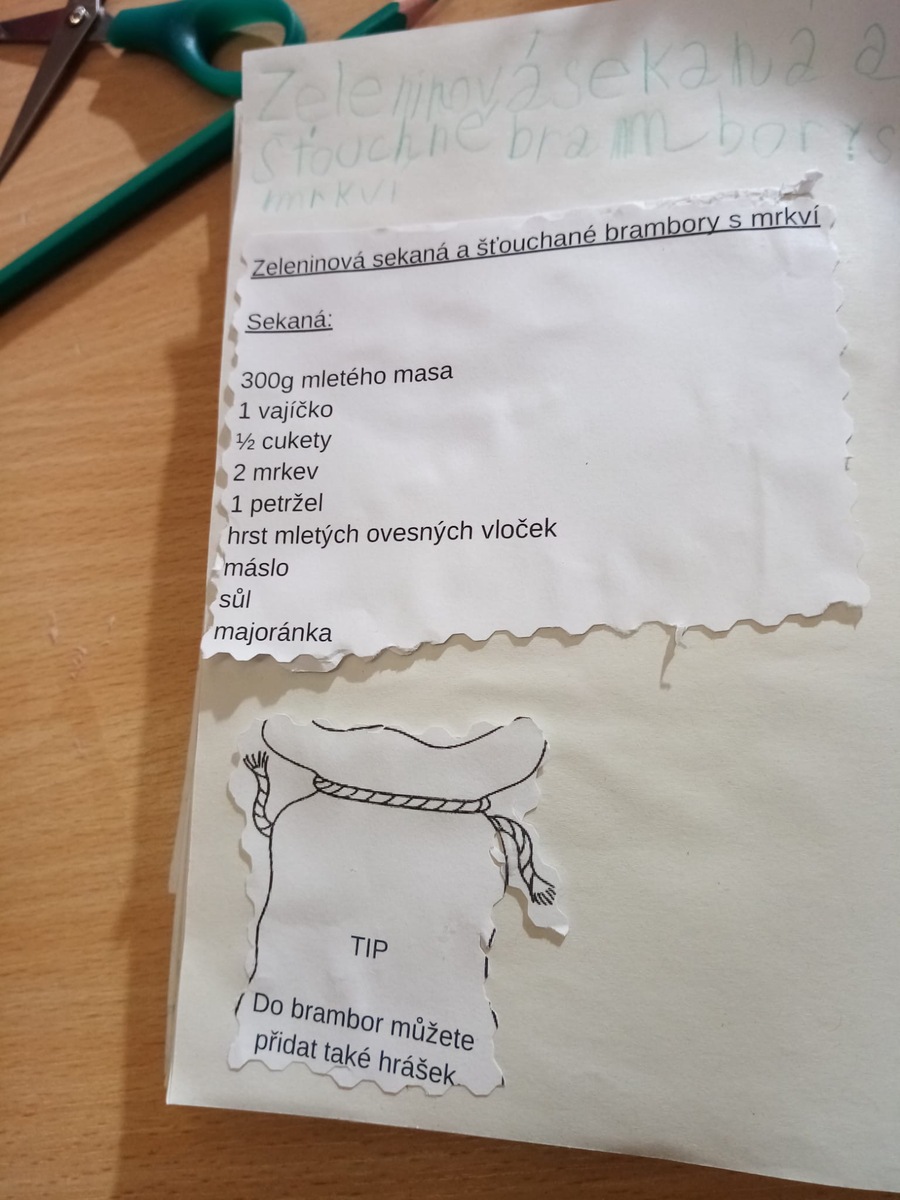 Zeleninová sekaná a
šťouchne bram borys
mrkví
Zeleninová sekaná a šťouchané brambory s mrkví
Sekaná:
300g mletého masa
1 vajíčko
½ cukety
2 mrkev
1 petržel
hrst mletých ovesných vloček
máslo
sůl
majoránka
TIP
Do brambor můžete
přidat také hrášek